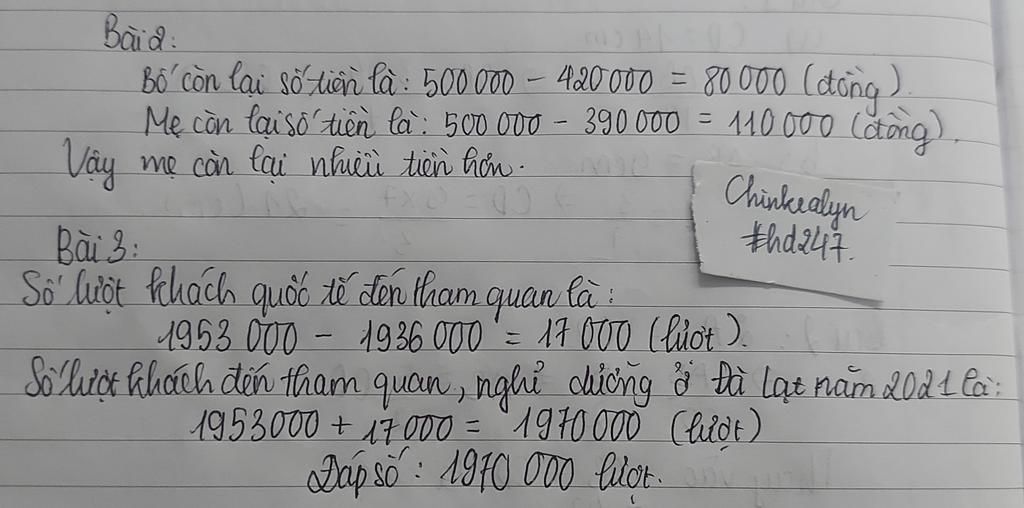 Bài 2:
Bố còn lại số tiền là: 500 000 - 420 000 = 80 000 (đồng).
Mẹ còn lại số tiền là: 500 000 - 390 000 = 110 000 (đồng).
Vậy mẹ còn lại nhiều tiền hơn.
Chinkealyn
#hd247.
Bài 3:
Số lượt khách quốc tế đến tham quan là:
1953 000 - 1936 000 = 17 000 (lượt).
Số lượt khách đến tham quan, nghỉ dưỡng ở Đà Lạt năm 2021 là:
1953000 + 17 000 = 1970 000 (lượt)
Đáp số: 1970 000 lượt.